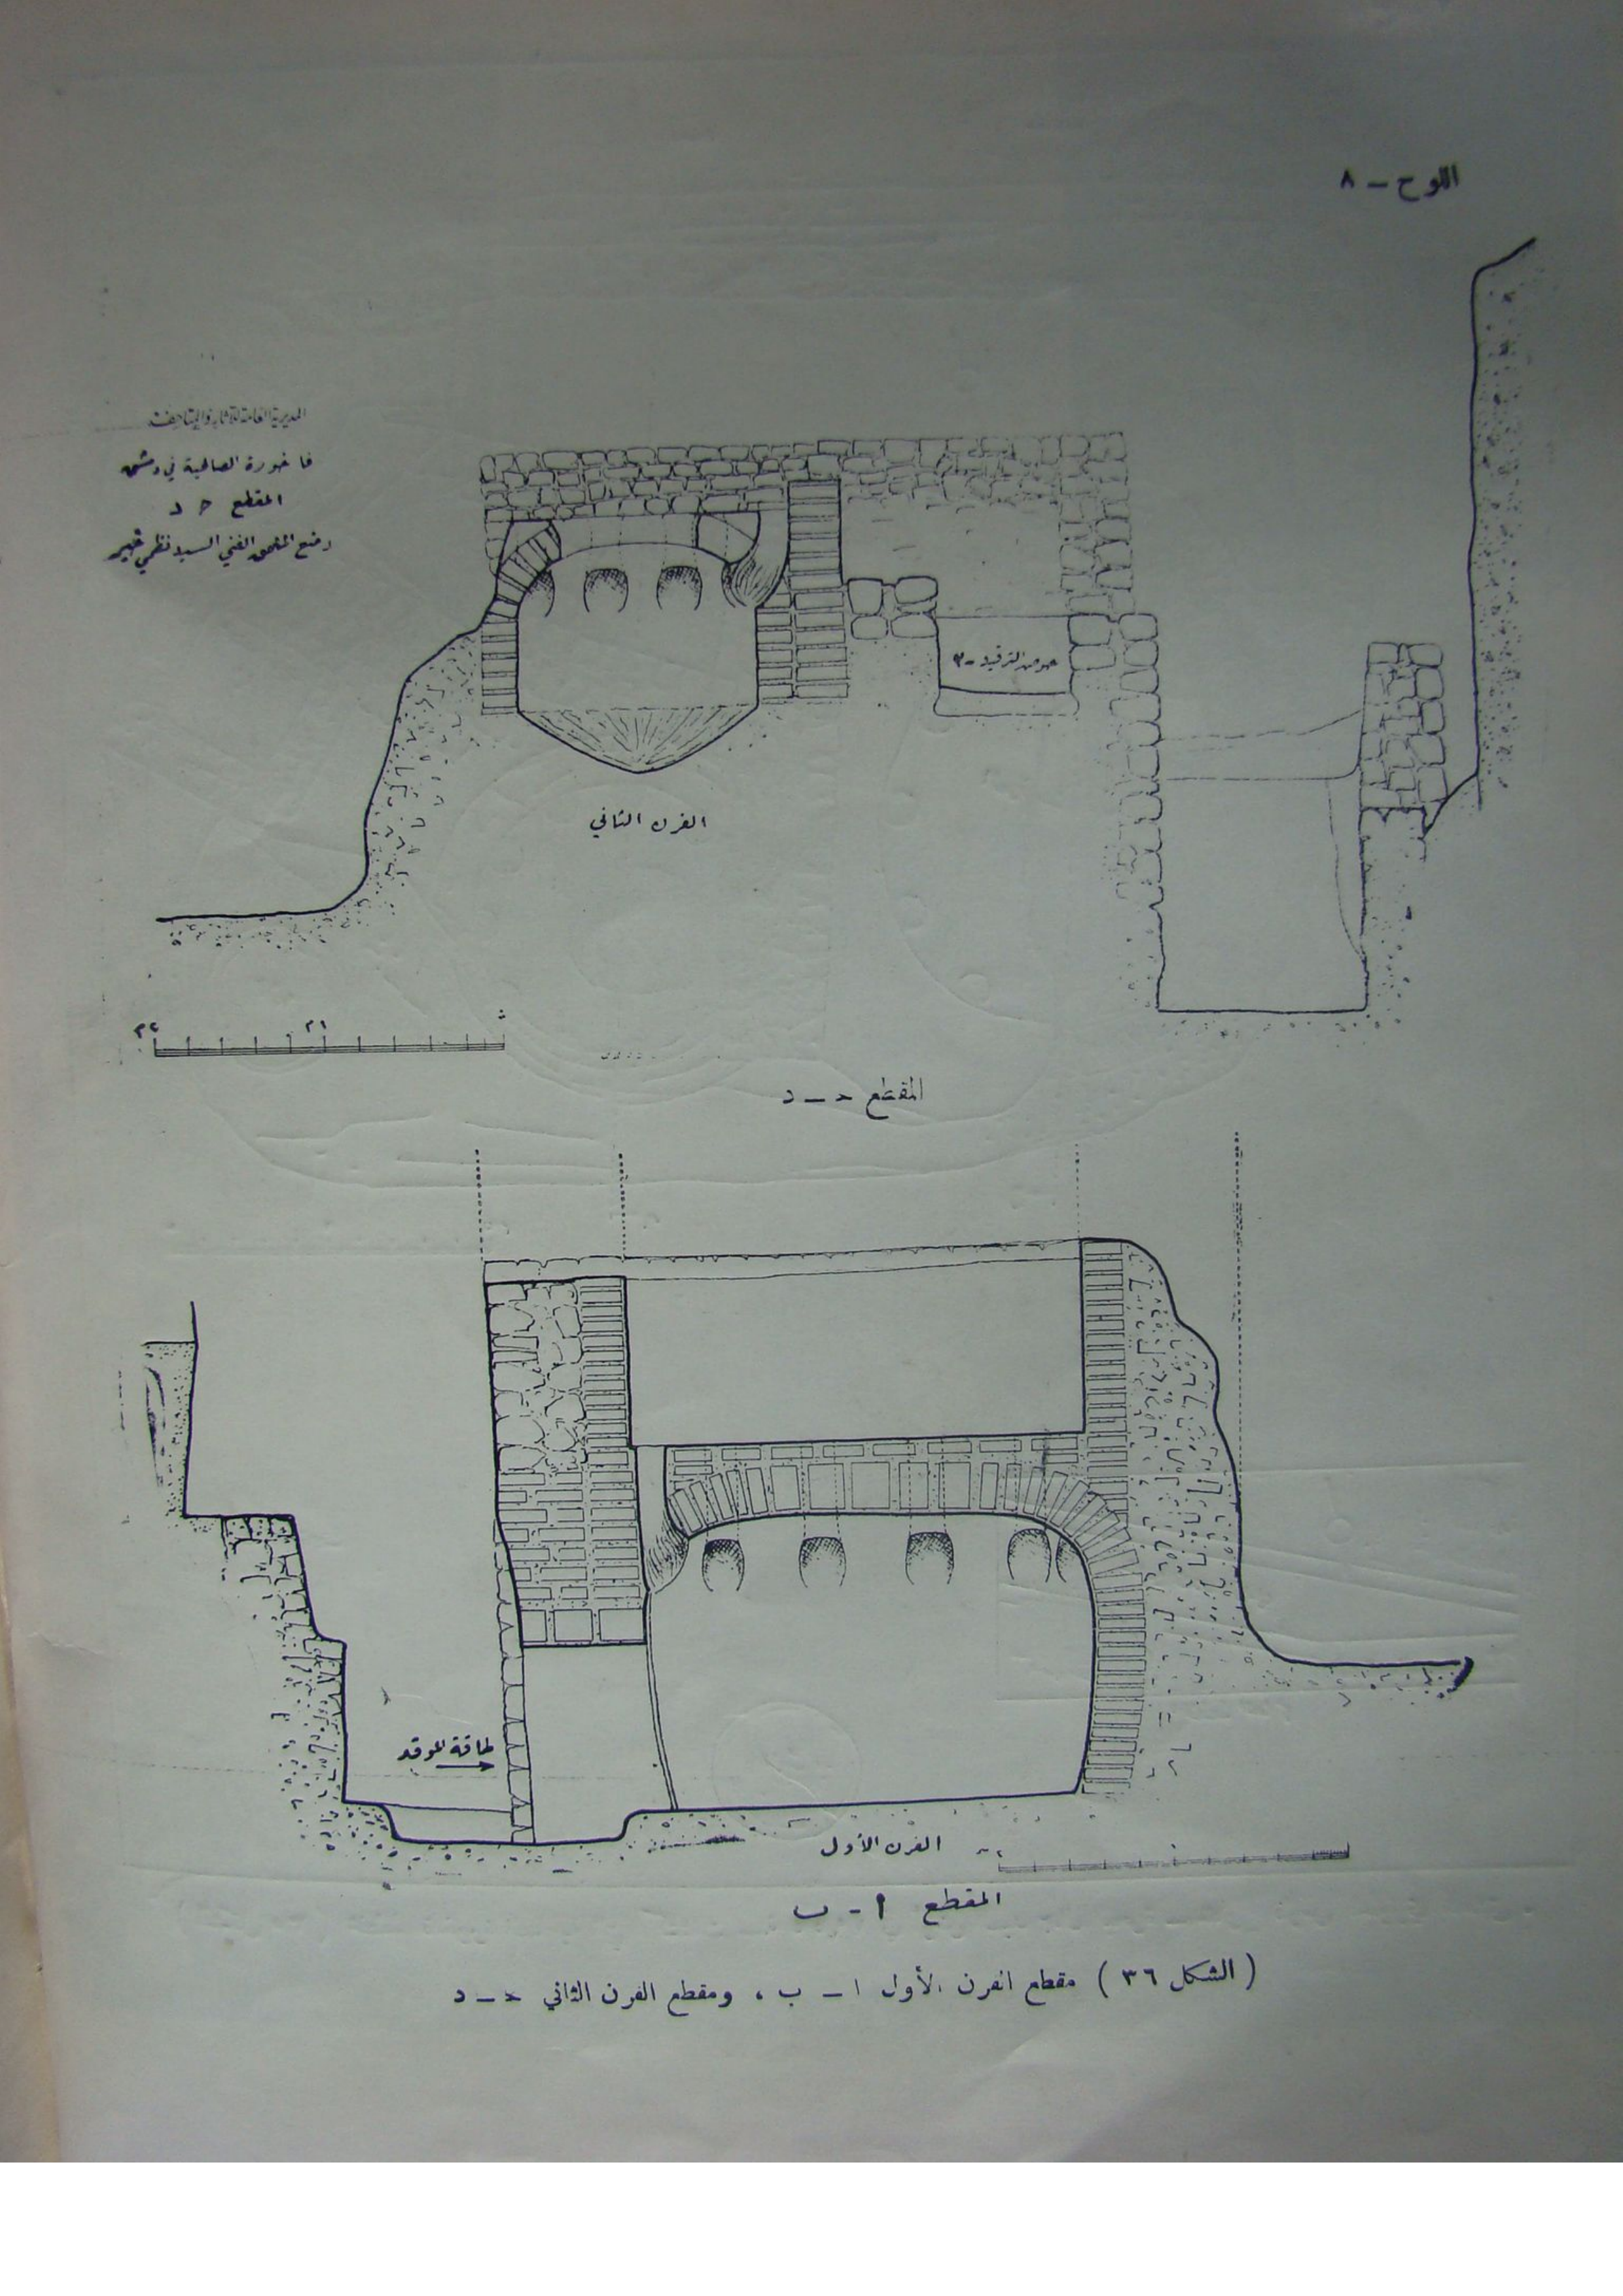 اللوح - ٨
المديرية العامة للآثار والمتاحف
فاخورة الصالحية في دمشق
المقطع حـ د
وضع الملحق الفني السيد نظمي خير
حوض الترقيد - ٣
الفرن الثاني
٢م ١م ٠
المقطع حـ ـ د
طاقة الموقد
الفرن الأول
المقطع أ - ب
( الشكل ٣٦ ) مقطع الفرن الأول ا - ب ، ومقطع الفرن الثاني حـ - د